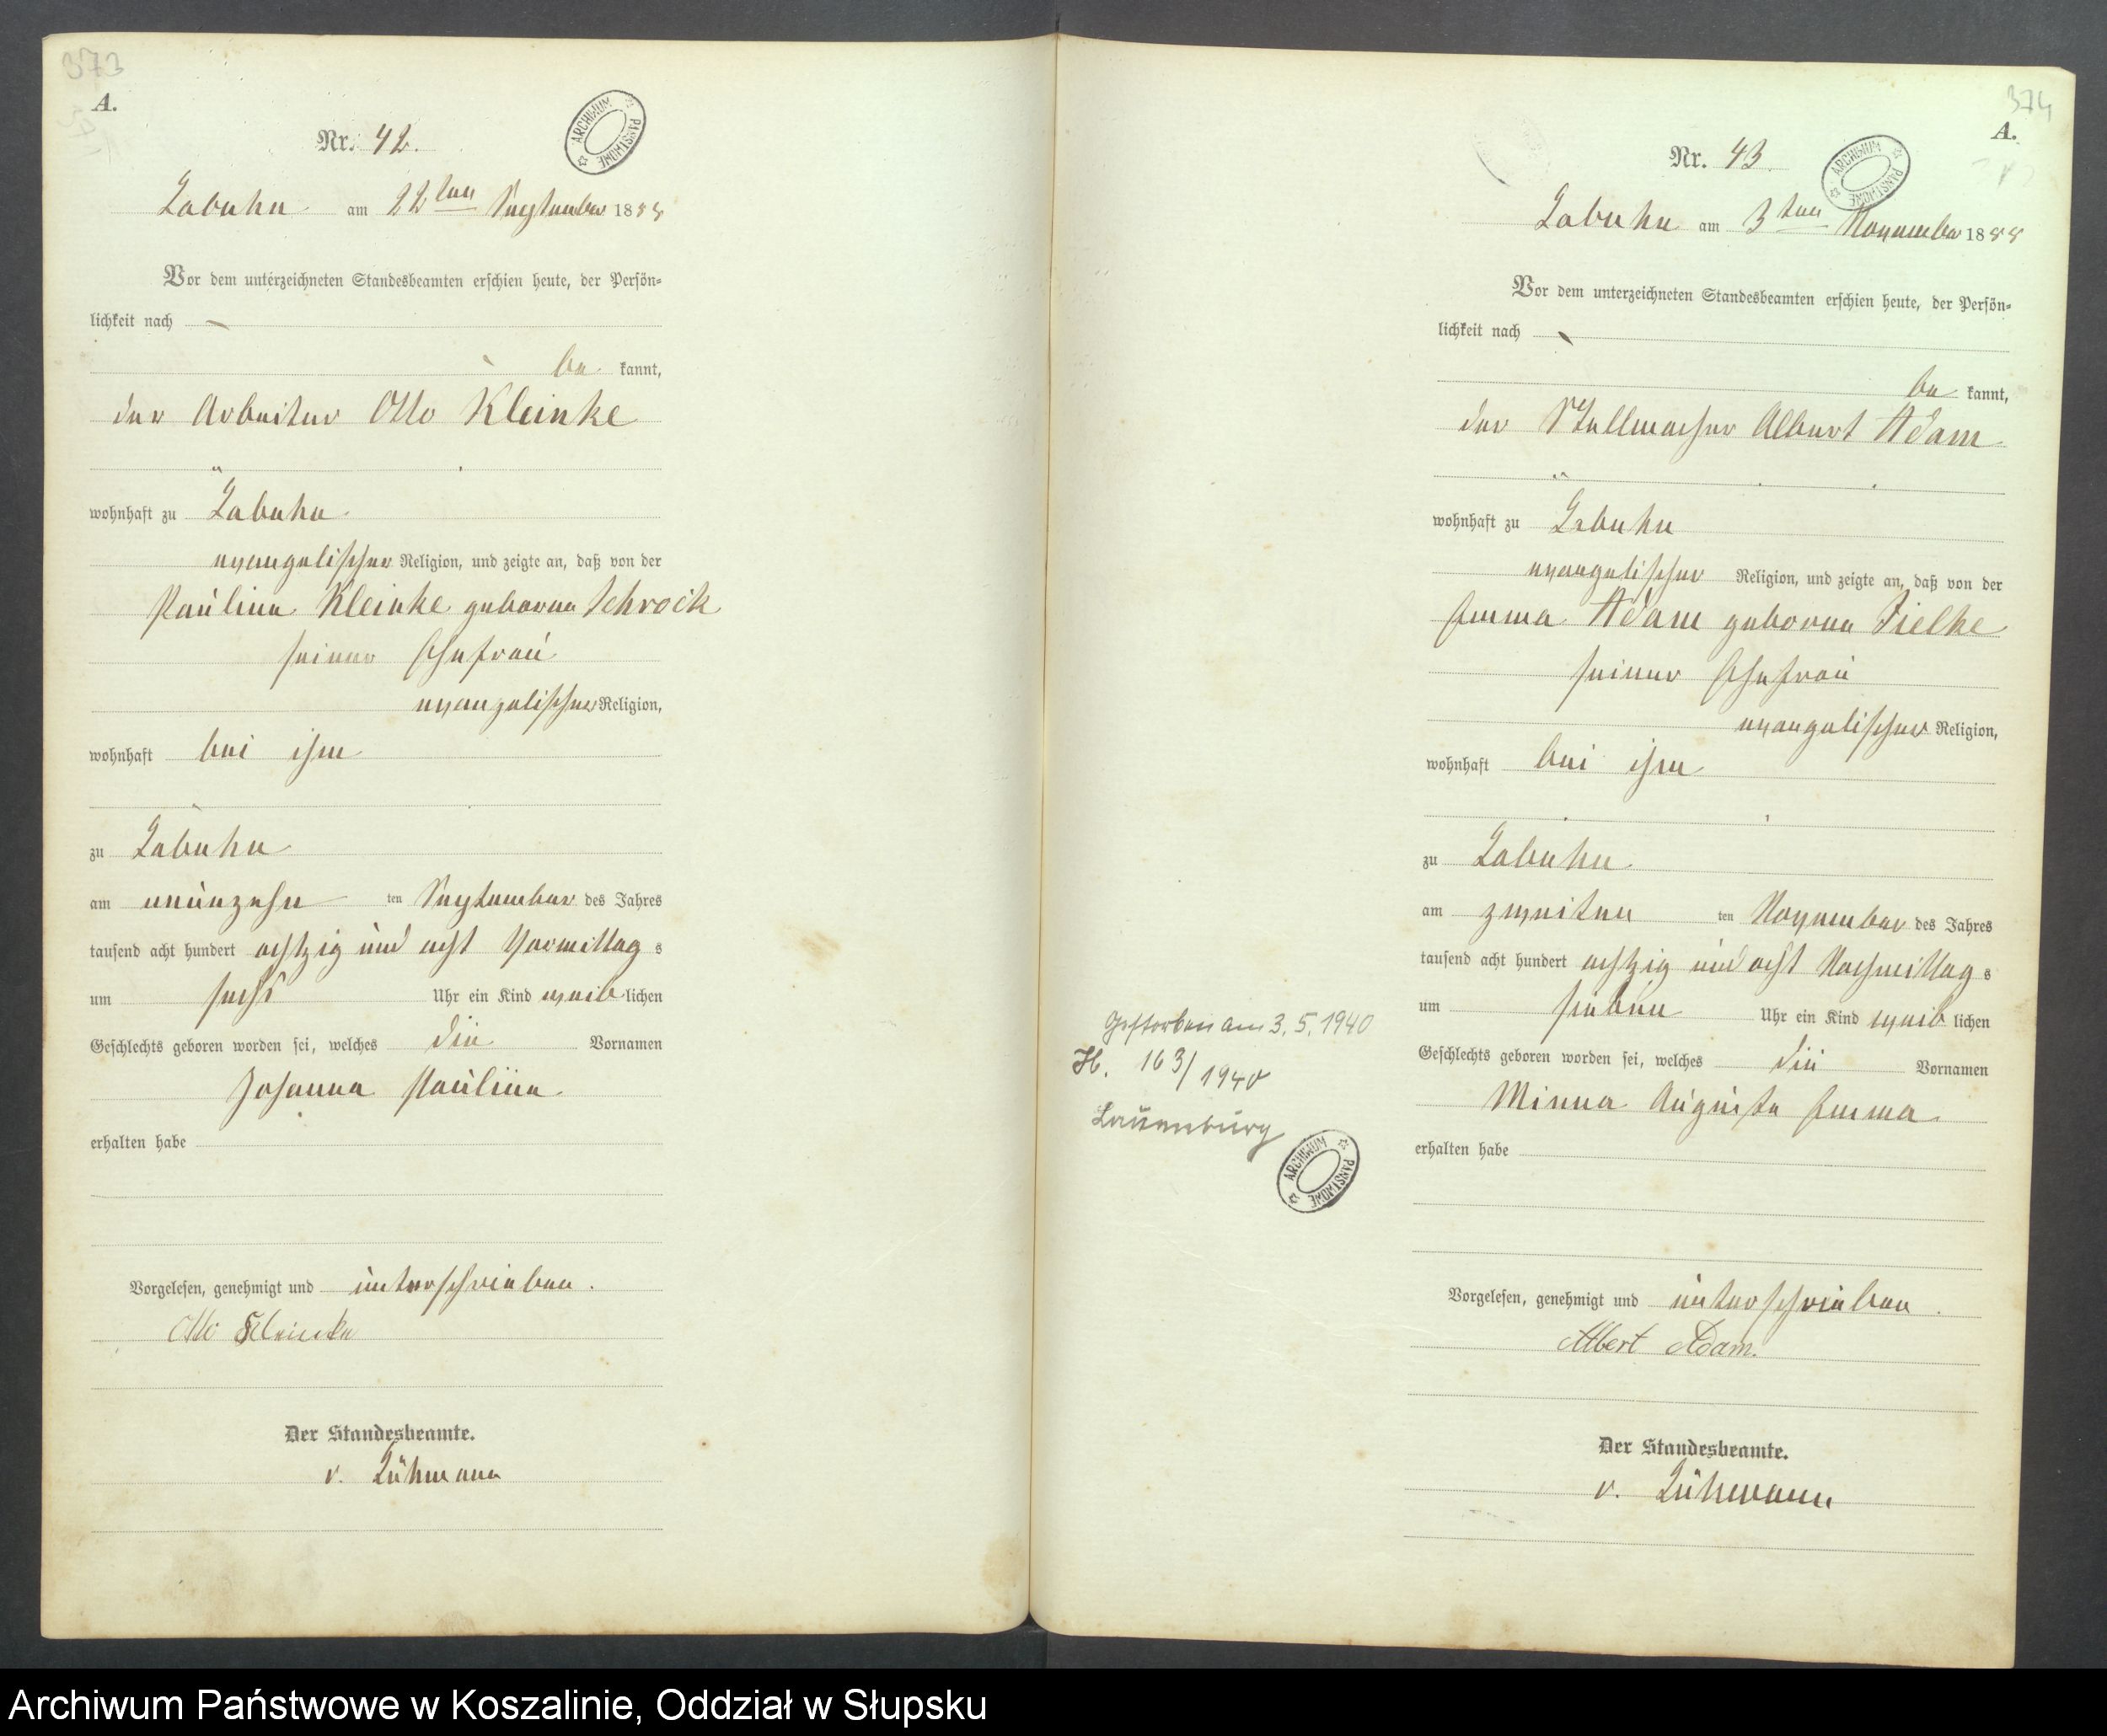 373
A.
ARCHIWUM PAŃSTWOWE
Nr. 42.
Labuhn am 22ten September 1888
Vor dem unterzeichneten Standesbeamten erschien heute, der Persön-
lichkeit nach
be kannt,
der Arbeiter Otto Kleinke
wohnhaft zu Labuhn
evangelischer Religion, und zeigte an, daß von der
Pauline Kleinke geborne Schrock
seiner Ehefrau
evangelischer Religion,
wohnhaft bei ihm
zu Labuhn
am neunzehn ten September des Jahres
tausend acht hundert achtzig und acht Vormittag s
um sechs Uhr ein Kind weib lichen
Geschlechts geboren worden sei, welches die Vornamen
Johanna Pauline
erhalten habe
Vorgelesen, genehmigt und unterschrieben.
Otto Kleinke
Der Standesbeamte.
v. Lühmann
374
A.
ARCHIWUM PAŃSTWOWE
Nr. 43.
Labuhn am 3ten November 1888
Vor dem unterzeichneten Standesbeamten erschien heute, der Persön-
lichkeit nach
be kannt,
der Stellmacher Albert Adam
wohnhaft zu Labuhn
evangelischer Religion, und zeigte an, daß von der
Emma Adam geborne Zielke
seiner Ehefrau
evangelischer Religion,
wohnhaft bei ihm
zu Labuhn
am zweiten ten November des Jahres
tausend acht hundert achtzig und acht Nachmittag s
um sieben Uhr ein Kind weib lichen
Geschlechts geboren worden sei, welches die Vornamen
Minna Auguste Emma
erhalten habe
Vorgelesen, genehmigt und unterschrieben.
Albert Adam.
Der Standesbeamte.
v. Lühmann
Gestorben am 3.5.1940
163/1940
Lauenburg
ARCHIWUM PAŃSTWOWE
Archiwum Państwowe w Koszalinie, Oddział w Słupsku